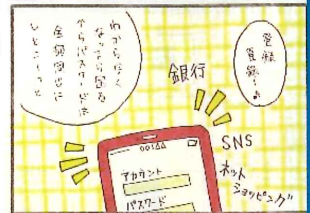 登録
登録…♪
わからなく
なったら困る
からパスワードは
全部同じに
しとこーっと
銀行
SNS
ネット
ショッピング
アカウント
パスワード